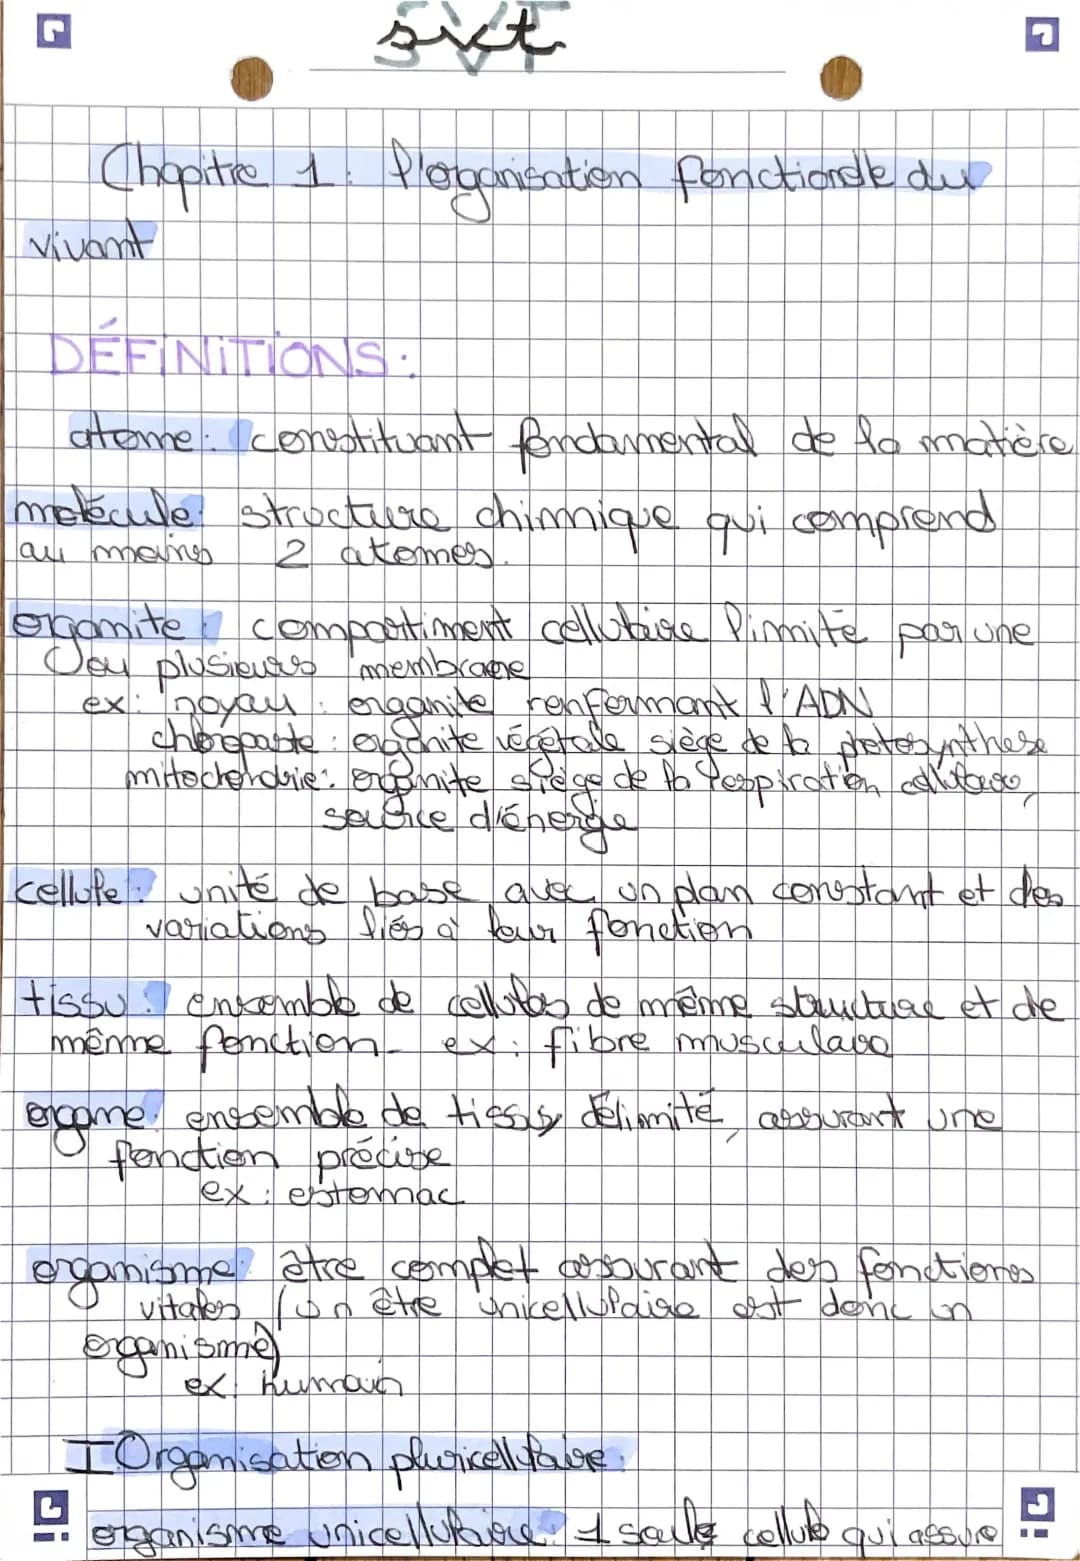 svt
Chapitre 1: l'organisation fonctionelle du
vivant
DÉFINITIONS:
atome: constituant fondamental de la matière
molécule: structure chimique qui comprend
au moins 2 atomes.
organite: compartiment cellulaire limité par une
ou plusieurs membrane
ex: noyau: organite renfermant l'ADN
chloroplaste: organite végétale siège de la photosynthèse
mitochondrie: organite siège de la respiration cellulaire,
source d'énergie
cellule: unité de base avec un plan constant et des
variations liés à leur fonction
tissu: ensemble de cellules de même structure et de
même fonction. ex: fibre musculaire
organe: ensemble de tissus délimité, assurant une
fonction précise
ex: estomac
organisme: être complet assurant des fonctions
vitales (un être unicellulaire est donc un
organisme)
ex: humain
I Organisation pluricellulaire.
organisme unicellulaire: 1 seule cellule qui assure